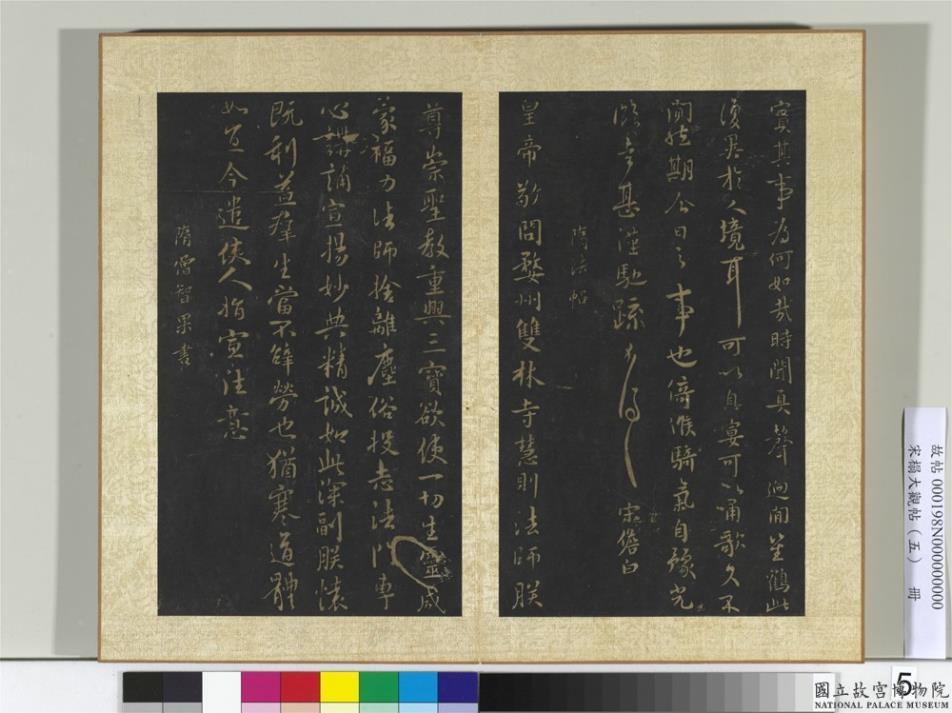 賓其事為何如哉時聞真聲迥聞笙鶴此
復畧於人境耳可以自宴可以誦歌久不
闕然期公日之事也倚候騎氣自豫光
臨幸甚謹馳疏 宋儋白
隋法帖
皇帝敬問婺州雙林寺慧則法師朕
尊崇聖教重興三寶欲使一切生靈咸
蒙福力法師捨離塵俗投志法門專
心講誦宣揚妙典精誠如此深副朕懷
既利益羣生當不辭勞也猶寒道體
如宜今遣使人指宣往意
隋僧智果書
故帖 000198N000000000
宋搨大觀帖(五) 冊
5
國立故宮博物院
NATIONAL PALACE MUSEUM